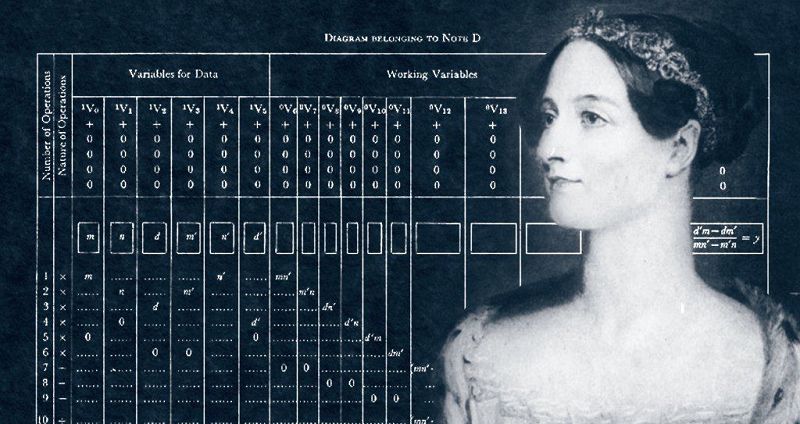 Diagram belonging to Note D
Number of Operations
Nature of Operations
Variables for Data Working Variables
¹V₀ ¹V₁ ¹V₂ ¹V₃ ¹V₄ ¹V₅ ⁰V₆ ⁰V₇ ⁰V₈ ⁰V₉ ⁰V₁₀ ⁰V₁₁ ⁰V₁₂ ⁰V₁₃
+ + + + + + + + + + + + + +
0 0 0 0 0 0 0 0 0 0 0 0 0 0
0 0 0 0 0 0 0 0 0 0 0 0 0 0
0 0 0 0 0 0 0 0 0 0 0 0 0 0 0
0 0 0 0 0 0 0 0 0 0 0 0 0 0 0
m n d m′ n′ d′ d′m−dm′ / mn′−m′n = y
1 × m ..... ..... ..... n′ ..... mn′
2 × ..... n ..... m′ ..... ..... ..... m′n
3 × ..... ..... d ..... ..... ..... ..... ..... dn′
4 × ..... 0 ..... ..... ..... d′ ..... ..... ..... d′n
5 × 0 ..... ..... ..... ..... 0 ..... ..... ..... ..... d′m
6 × ..... ..... 0 0 ..... ..... ..... ..... ..... ..... ..... dm′
7 − ..... ..... ..... ..... ..... ..... 0 0 ..... ..... ..... ..... (mn′-
8 − ..... ..... ..... ..... ..... ..... ..... ..... 0 0 ..... .....
9 − ..... ..... ..... ..... ..... ..... ..... ..... ..... ..... 0 0
10 ÷ ..... ..... ..... ..... ..... ..... ..... ..... ..... ..... ..... ..... (mn′-